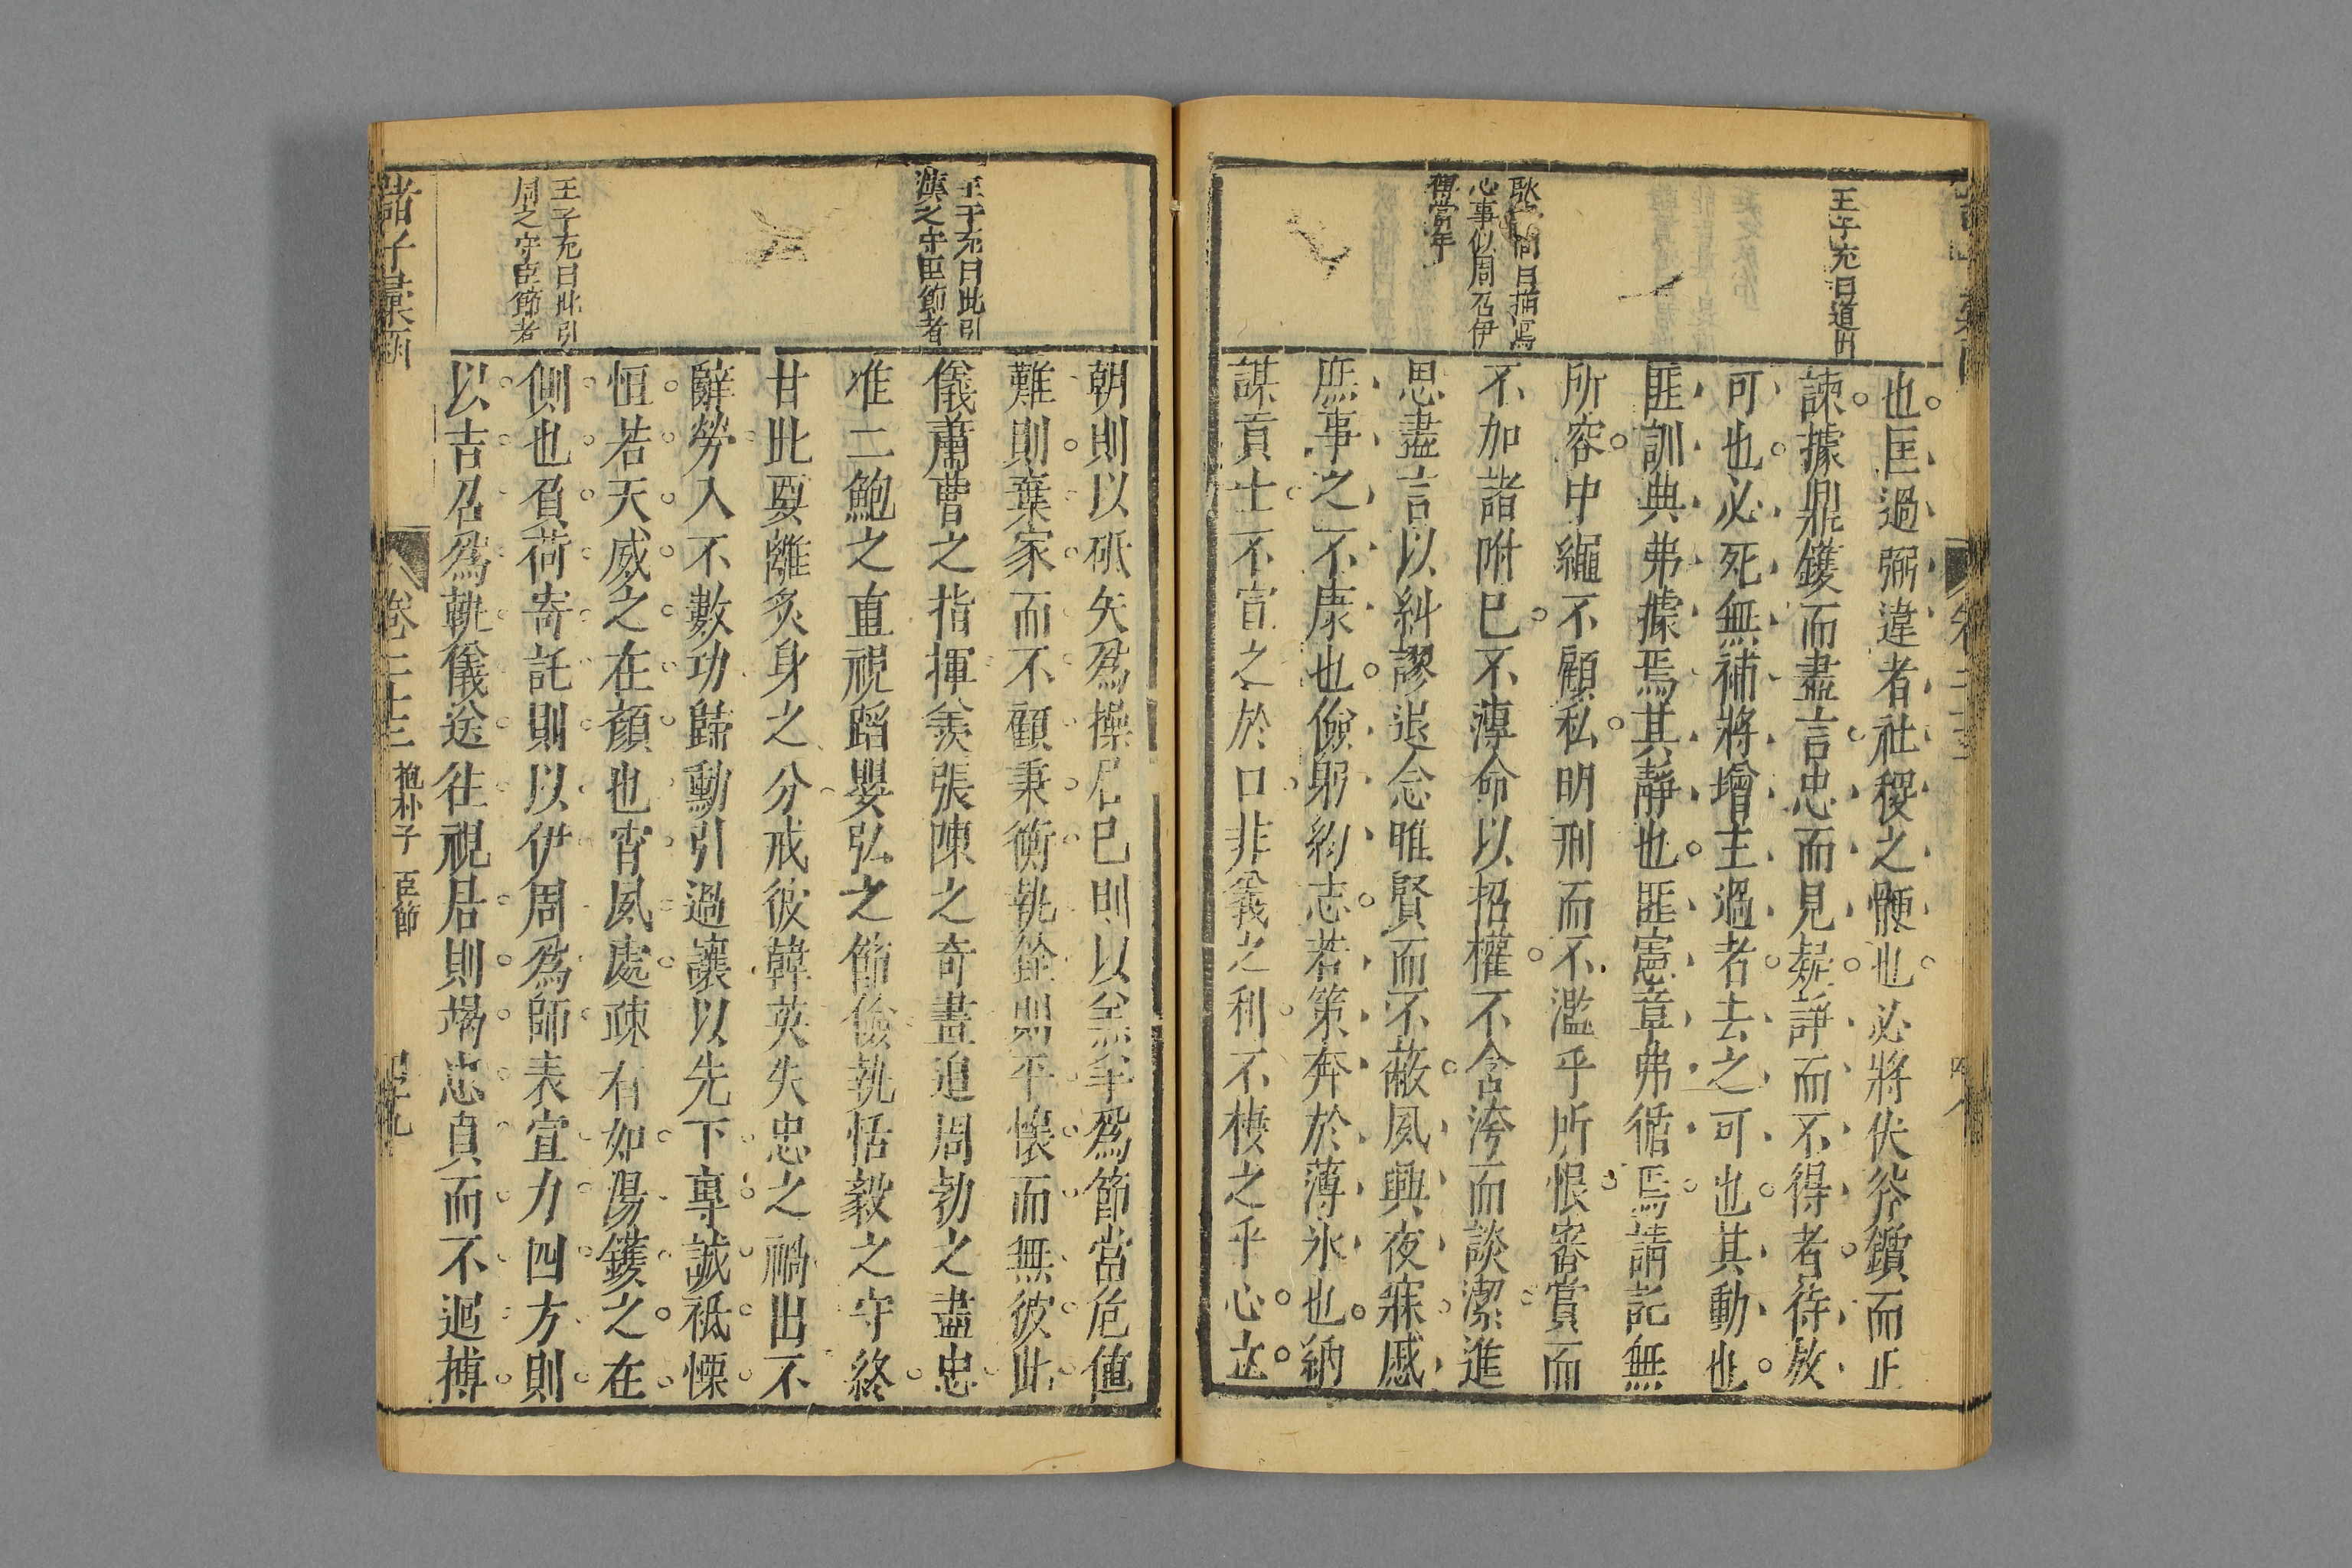 王子充曰道出
耿㝎向曰描寫
心事似周乃伊
傅當年
也匡過弼違者社稷之骾也必將伏斧鑕而正
諫據鼎鑊而盡言忠而見疑諍而不得者待放
可也必死無補將增主過者去之可也其動也
匪訓典弗據焉其靜也匪憲章弗循焉請託無
所容申繩不顧私明刑而不濫乎所恨審賞而
不加諸附已不薄命以招權不含洿而談潔進
思盡言以糾謬退念唯賢而不蔽夙興夜寐慼
庶事之不康也儉躬約志若策奔於薄氷也納
謀貢士不宣之於口非義之利不棲之乎心立
王子充曰此引
漢之守臣節者
王子充曰此引
周之守臣節者
朝則以砥矢爲操居已則以羔羊爲節當危值
難則棄家而不顧秉衡執銓則平懷而無彼此
儀蕭曹之指揮羨張陳之奇畫追周勃之盡忠
准二鮑之直視蹈嬰弘之節儉執恬毅之守終
甘此要離炙身之分戒彼韓英失忠之禍出不
辭勞入不數功歸勳引過讓以先下專誠祗慄
恒若天威之在顏也宵夙處疎有如湯鑊之在
側也負荷寄託則以伊周爲師表宣力四方則
以吉召爲軌儀送往視居則竭忠貞而不迴搏
諸子彚函
卷二十三
抱朴子 臣節
四十九